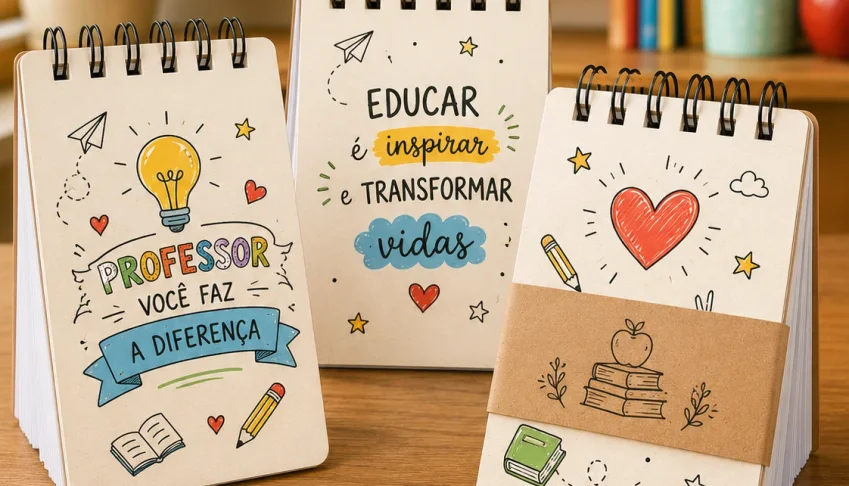 PROFESSOR
VOCÊ FAZ
A DIFERENÇA
EDUCAR
é inspirar
e TRANSFORMAR
vidas